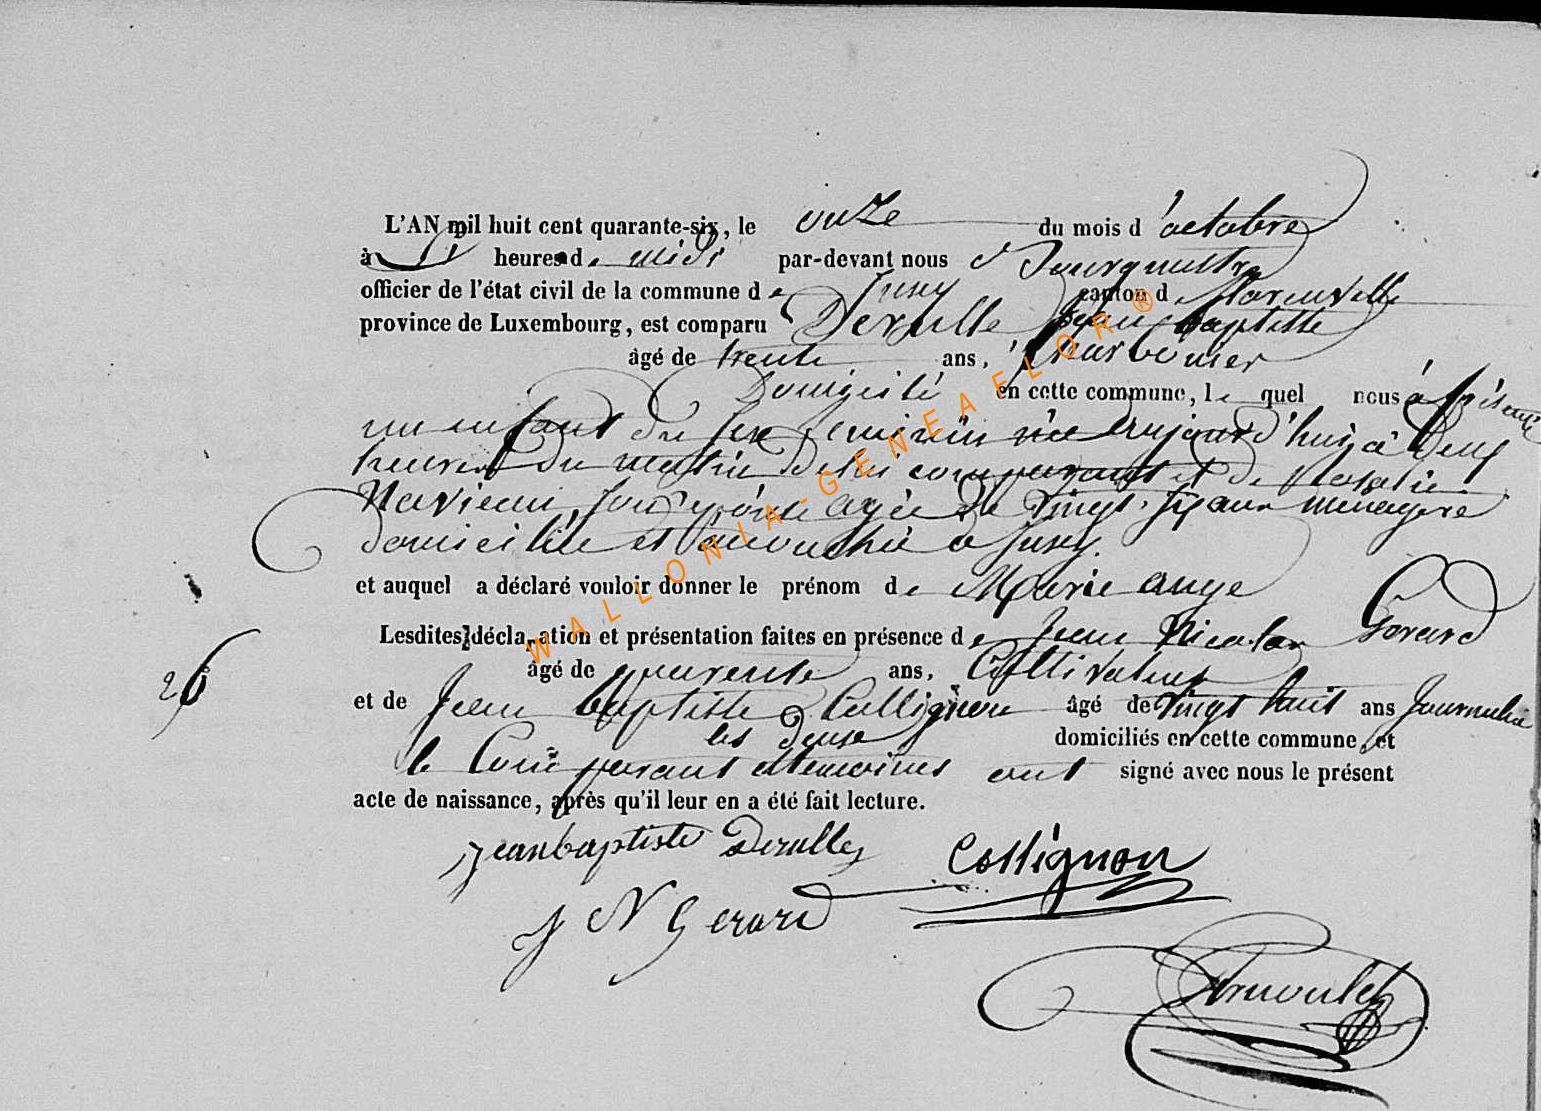 L'AN mil huit cent quarante-six, le onze du mois d'octobre
à heures d. midi par-devant nous Bourguestre
officier de l'état civil de la commune de Jusy canton d
province de Luxembourg, est comparu Derulle Jean baptiste
âgé de trente ans, Charbonier
Domicilié en cette commune, le quel nous à présenté
un enfant du sexe féminin née aujourd'hui à deux
heures du matin de lui comparant et de Rosalie
âgée de vingt-six ans ménagère
domiciliée et accouchée a Jusy.
et auquel a déclaré vouloir donner le prénom de Marie ange
Lesdites déclaration et présentation faites en présence de Jean Nicolas Gerard
âgé de quarente ans, Cultivateur
26
et de Jean Baptiste Collignon âgé de vingt huit ans Journalier
les deux domiciliés en cette commune, et
le Comparant et temoins ont signé avec nous le présent
acte de naissance, après qu'il leur en a été fait lecture.
Jeanbaptiste Derulle Collignon
J N Gerard
WALLONIA-GENEA FLOR ®